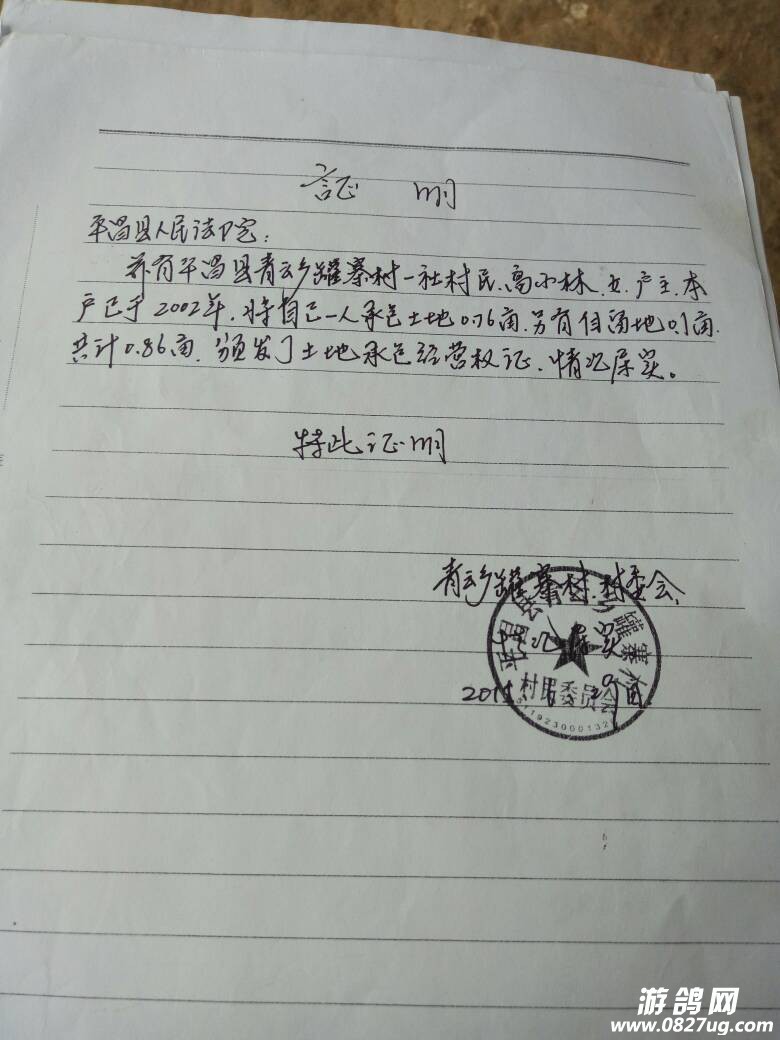 证 明
平昌县人民法院：
兹有平昌县青云乡罐寨村一社村民、高小林、女、户主、本
户已于2002年、将自己一人承包土地0.76亩、另有自留地0.1亩、
共计0.86亩、颁发了土地承包经营权证、情况属实。
特此证明
青云乡罐寨村、村委会、
情况属实
平昌县 乡罐寨村
村民委员会
游鸽网
www.0827ug.com